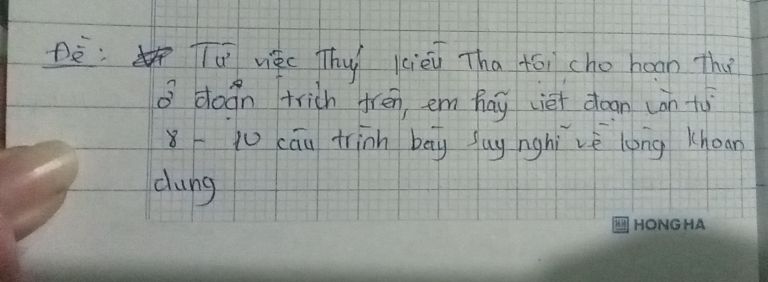 Đề: Từ việc Thuý Kiều Tha tội cho hoạn Thư
ở đoạn trích trên, em hãy viết đoạn văn từ
8 - 10 câu trình bày suy nghĩ về lòng khoan
dung
HONG HA